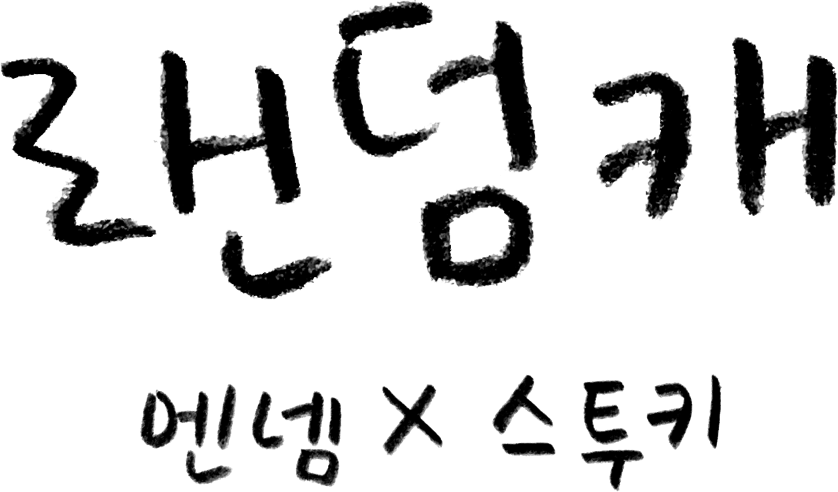 랜덤캐
엔넴 X 스투키